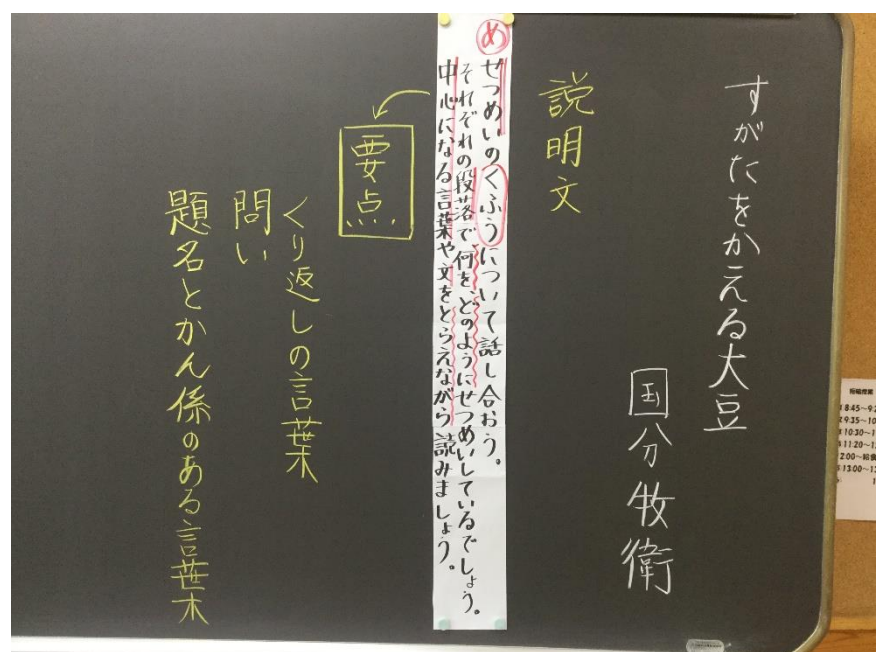 すがたをかえる大豆
国分牧衛
説明文
め
せつめいのくふうについて話し合おう。
それぞれの段落で、何を、どのようにせつめいしているでしょう。
中心になる言葉や文をとらえながら読みましょう。
要点
くり返しの言葉
問い
題名とかん係のある言葉
8:45～9:
9:35～10
10:30～1
11:20～1
13:00～1